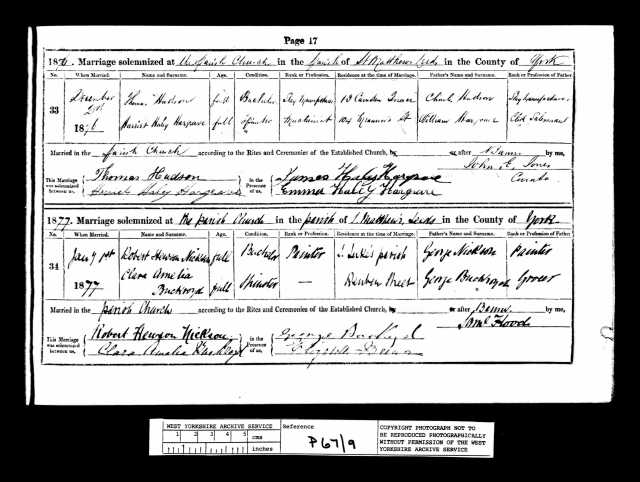 Page 17
1876. Marriage solemnized at the Parish Church in the Parish of St Matthew Leeds in the County of York
No. When Married. Name and Surname. Age. Condition. Rank or Profession. Residence at the time of Marriage. Father's Name and Surname. Rank or Profession of Father.
33 December Thomas Hudson full Bachelor 10 Camden Charles Hudson
1876 Harriet Haley Hargrave full Spinster Machinist 104 St William Hargrave
Married in the Parish Church according to the Rites and Ceremonies of the Established Church, by or after Banns by me,
This Marriage was solemnized between us, Thomas Hudson in the Presence of us, James Haley Hargrave John E. Jones
Harriet Haley Hargrave Emma Haley Hargrave Curate
1877. Marriage solemnized at the parish Church in the parish of St Matthew's, Leeds in the County of York
No. When Married. Name and Surname. Age. Condition. Rank or Profession. Residence at the time of Marriage. Father's Name and Surname. Rank or Profession of Father.
34 Jany 1st Robert Hewson Nickson full Bachelor Painter St Luke's parish George Nickson Painter
1877 Clara Amelia Buckroyd full Spinster — Street George Buckroyd Grocer
Married in the parish Church according to the Rites and Ceremonies of the Established Church, by or after Banns by me,
This Marriage was solemnized between us, Robert Hewson Nickson in the Presence of us, George Buckroyd Saml Flood
Clara Amelia Buckroyd
WEST YORKSHIRE ARCHIVE SERVICE
1 2 3 4 5 cms
1 2 inches
Reference
P67/9
COPYRIGHT PHOTOGRAPH NOT TO
BE REPRODUCED PHOTOGRAPHICALLY
WITHOUT PERMISSION OF THE WEST
YORKSHIRE ARCHIVE SERVICE